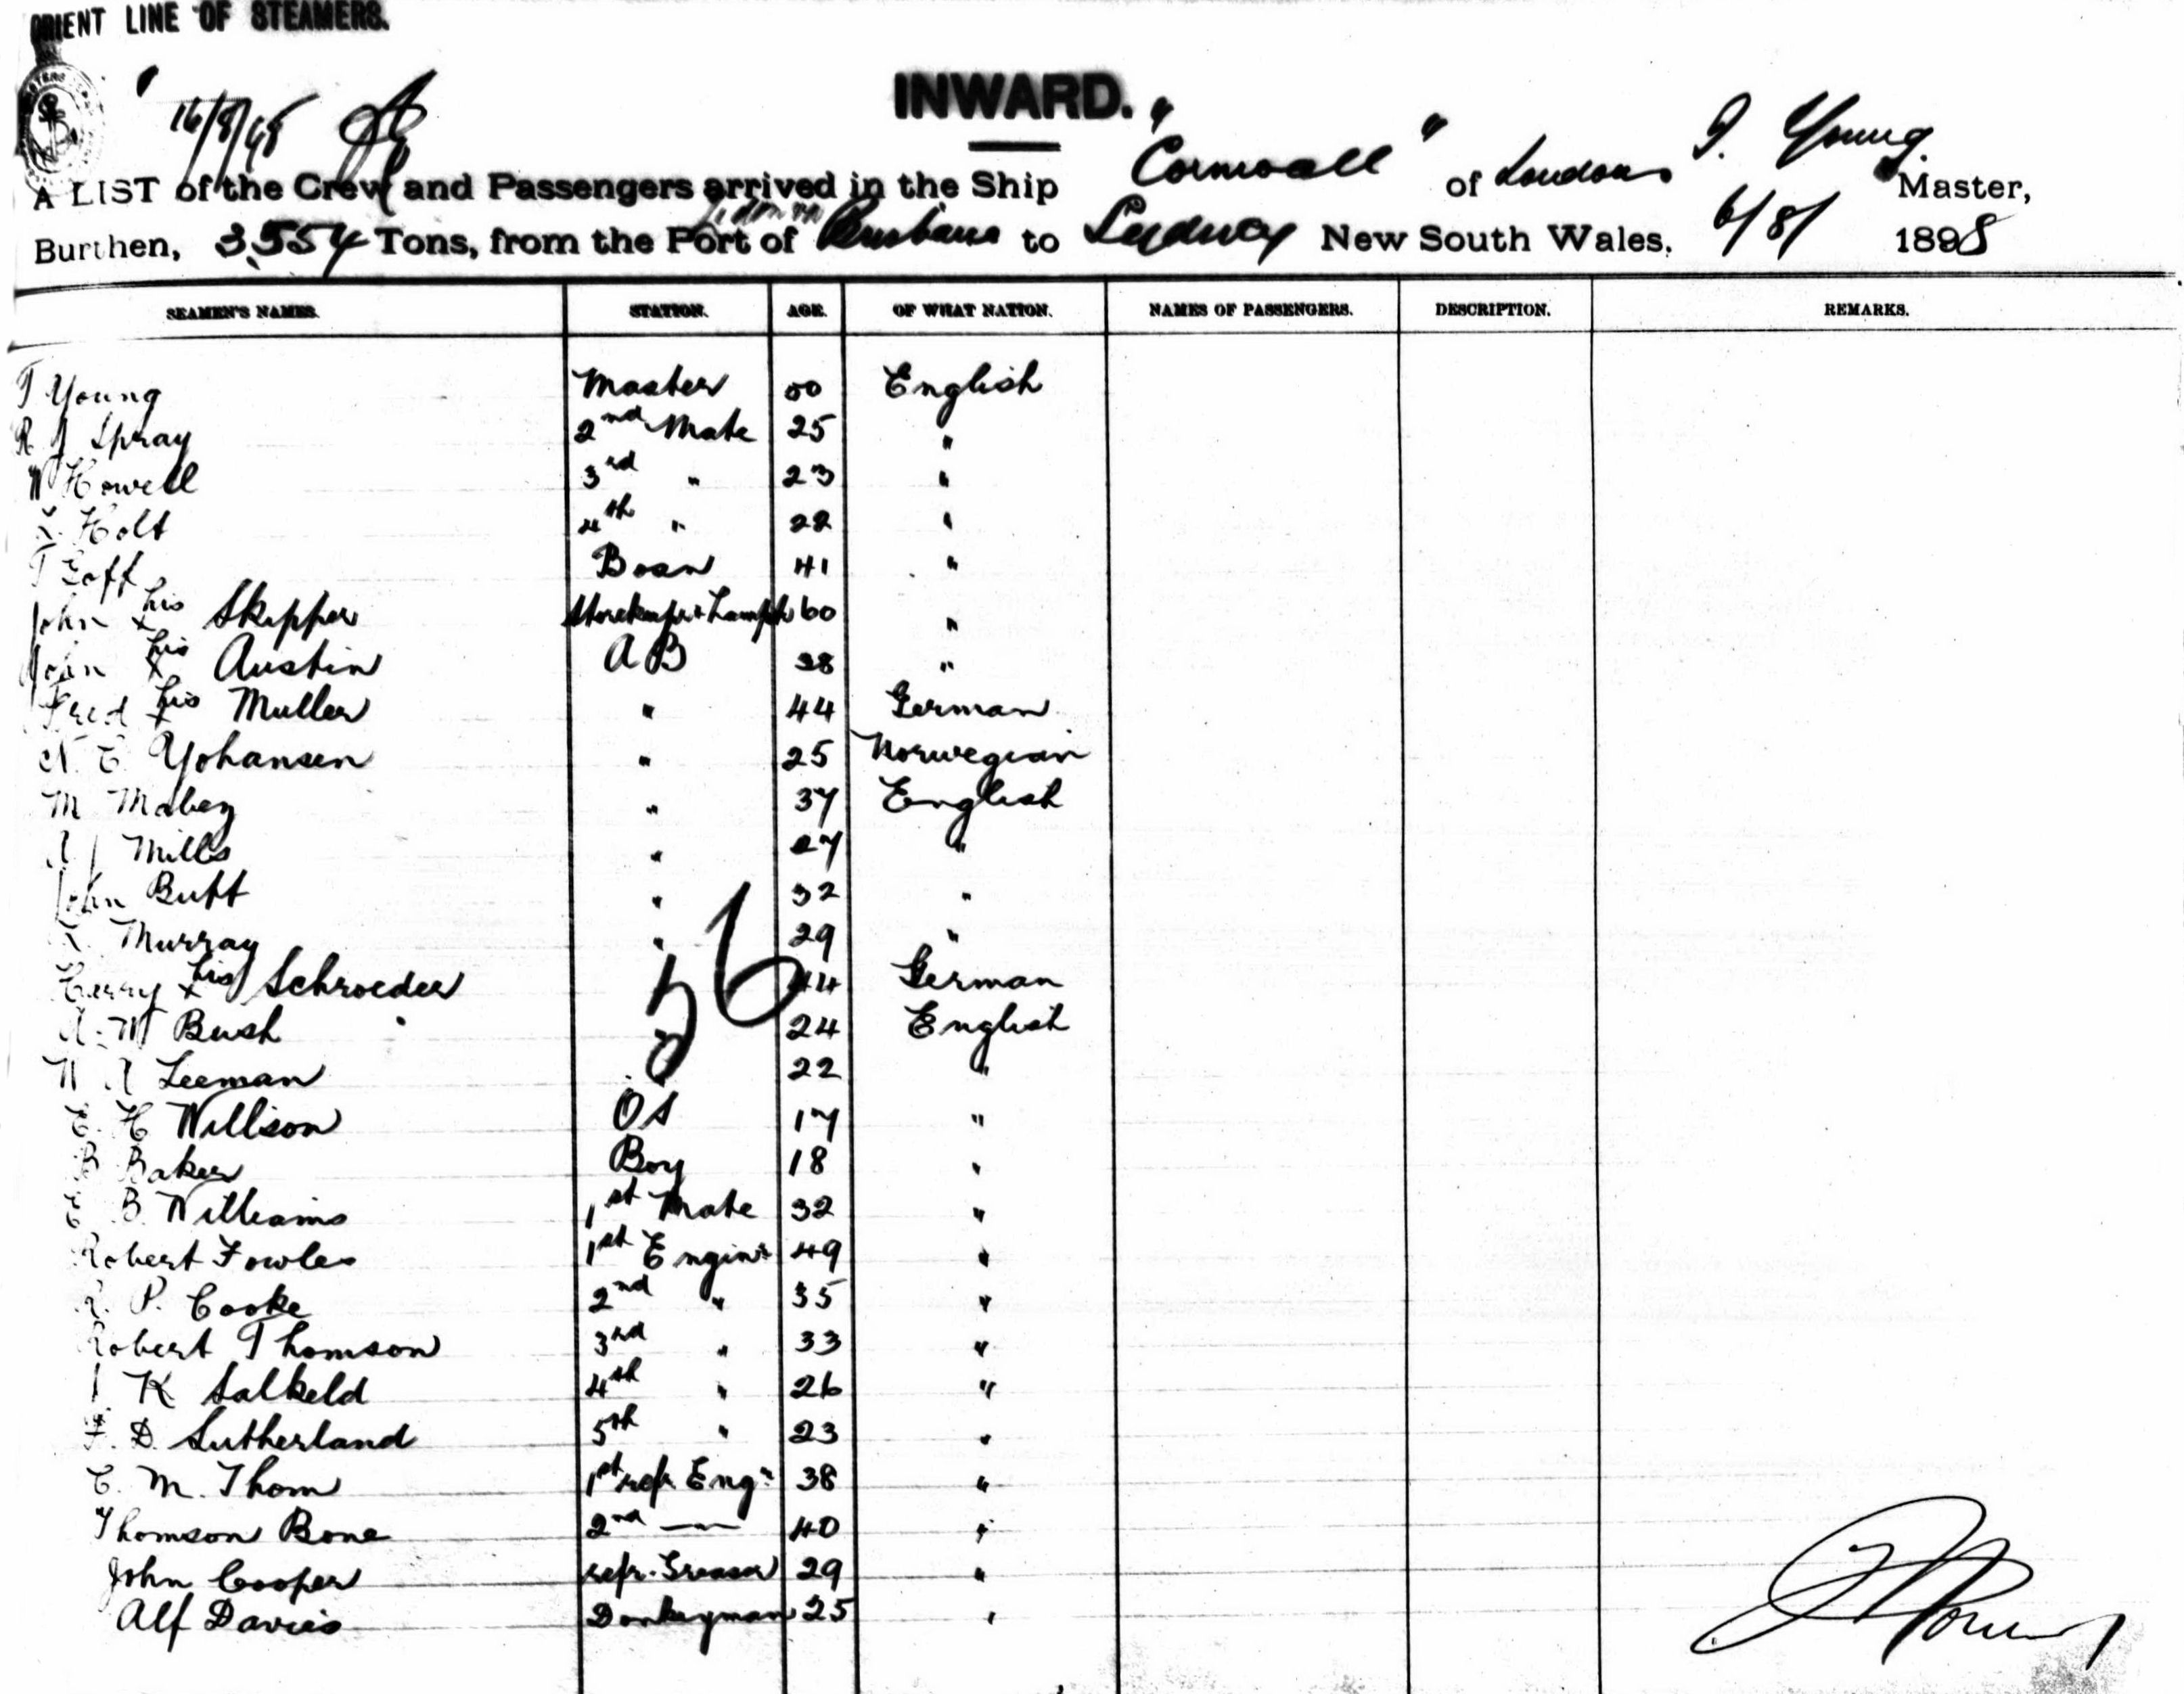 ORIENT LINE OF STEAMERS.
INWARD.
16/8/98
A LIST of the Crew and Passengers arrived in the Ship "Cornwall" of London T. Young Master,
Burthen, 3,554 Tons, from the Port of Brisbane to Sydney New South Wales, 6/8/ 1898
SEAMEN'S NAMES. STATION. AGE. OF WHAT NATION. NAMES OF PASSENGERS. DESCRIPTION. REMARKS.
T Young Master 50 English
R J Spray 2nd Mate 25 "
W Howell 3rd " 23 "
Holt 4th " 22 "
T Goff Bosn 41 "
John his x Skipper Storekeepr & Lamp 60 "
John his x Austin AB 38 "
Fred his x Muller " 44 German
N. E. Yohansen " 25 Norwegian
M Mabey " 37 English
Mills " 27 "
John Butt " 32 "
Murray " 29 "
56
Harry his x Schroeder 44 German
A. W Bush " 24 English
W A Leeman " 22 "
E. H Willison OS 17 "
B Baker Boy 18 "
E B. Williams 1st Mate 32 "
Robert Fowles 1st Enginr 49 "
R. P. Cooke 2nd " 35 "
Robert Thomson 3rd " 33 "
K Salkeld 4th " 26 "
F. D. Sutherland 5th " 23 "
C. M. Thom 1st refr. Engr 38 "
Thomson Bone 2nd — " — 40 "
John Cooper refr. Greaser 29 "
Alf Davies Donkeyman 25 "
T Young